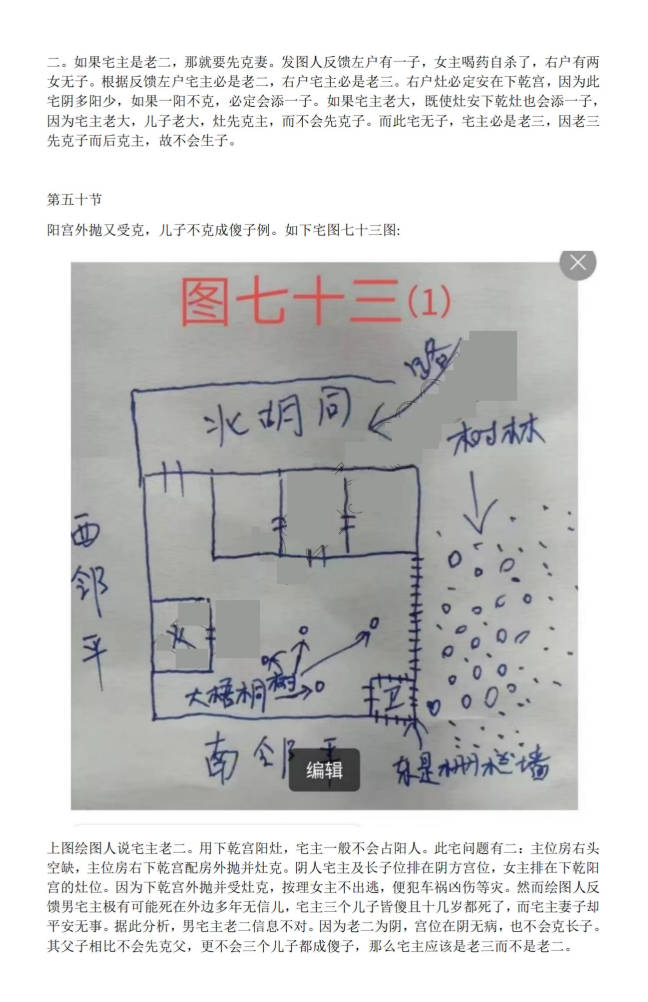 二。如果宅主是老二，那就要先克妻。发图人反馈左户有一子，女主喝药自杀了，右户有两
女无子。根据反馈左户宅主必是老二，右户宅主必是老三。右户灶必定安在下乾宫，因为此
宅阴多阳少，如果一阳不克，必定会添一子。如果宅主老大，既使灶安下乾灶也会添一子，
因为宅主老大，儿子老大，灶先克主，而不会先克子。而此宅无子，宅主必是老三，因老三
先克子而后克主，故不会生子。
第五十节
阳宫外抛又受克，儿子不克成傻子例。如下宅图七十三图:
图七十三(1)
路
北胡同
树林
西邻平
火
大梧桐树
卫
南邻平
编辑
东是栅栏墙
上图绘图人说宅主老二。用下乾宫阳灶，宅主一般不会占阳人。此宅问题有二：主位房右头
空缺，主位房右下乾宫配房外抛并灶克。阴人宅主及长子位排在阴方宫位，女主排在下乾阳
宫的灶位。因为下乾宫外抛并受灶克，按理女主不出逃，便犯车祸凶伤等灾。然而绘图人反
馈男宅主极有可能死在外边多年无信儿，宅主三个儿子皆傻且十几岁都死了，而宅主妻子却
平安无事。据此分析，男宅主老二信息不对。因为老二为阴，宫位在阴无病，也不会克长子。
其父子相比不会先克父，更不会三个儿子都成傻子，那么宅主应该是老三而不是老二。